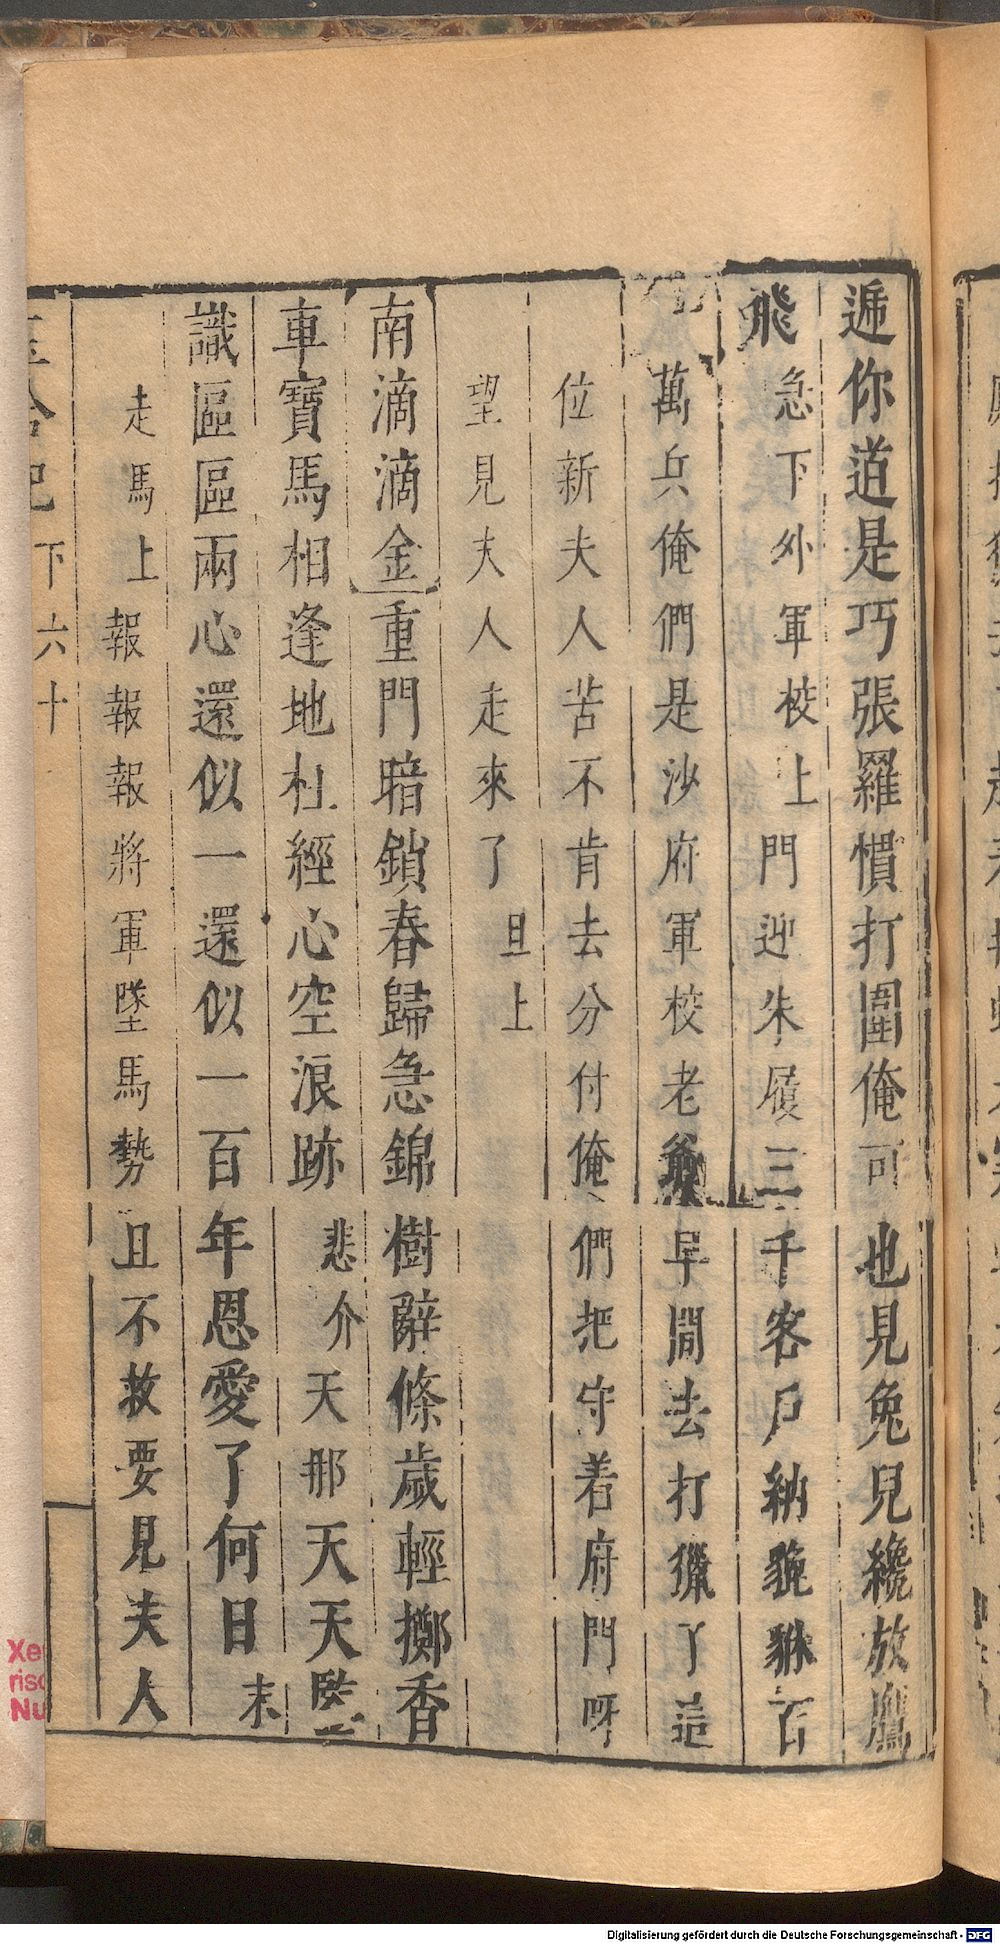 遞你道是巧張羅慣打圍俺可也見兔兒纔放鷹
飛急下外軍校上門迎朱履三千客戶納貔貅百
萬兵俺們是沙府軍校老爺早間去打獵了這
位新夫人苦不肯去分付俺們把守着府門呀
望見夫人走來了旦上
南滴滴金重門暗鎖春歸急錦樹辭條歲輕擲香
車寶馬相逢地杜經心空浪跡悲介天那天天既
識區區兩心還似一還似一百年恩愛了何日末
走馬上報報報將軍墜馬勢且不救要見夫人
下六十
Xe
ris
Nu
Digitalisierung gefördert durch die Deutsche Forschungsgemeinschaft - DFG